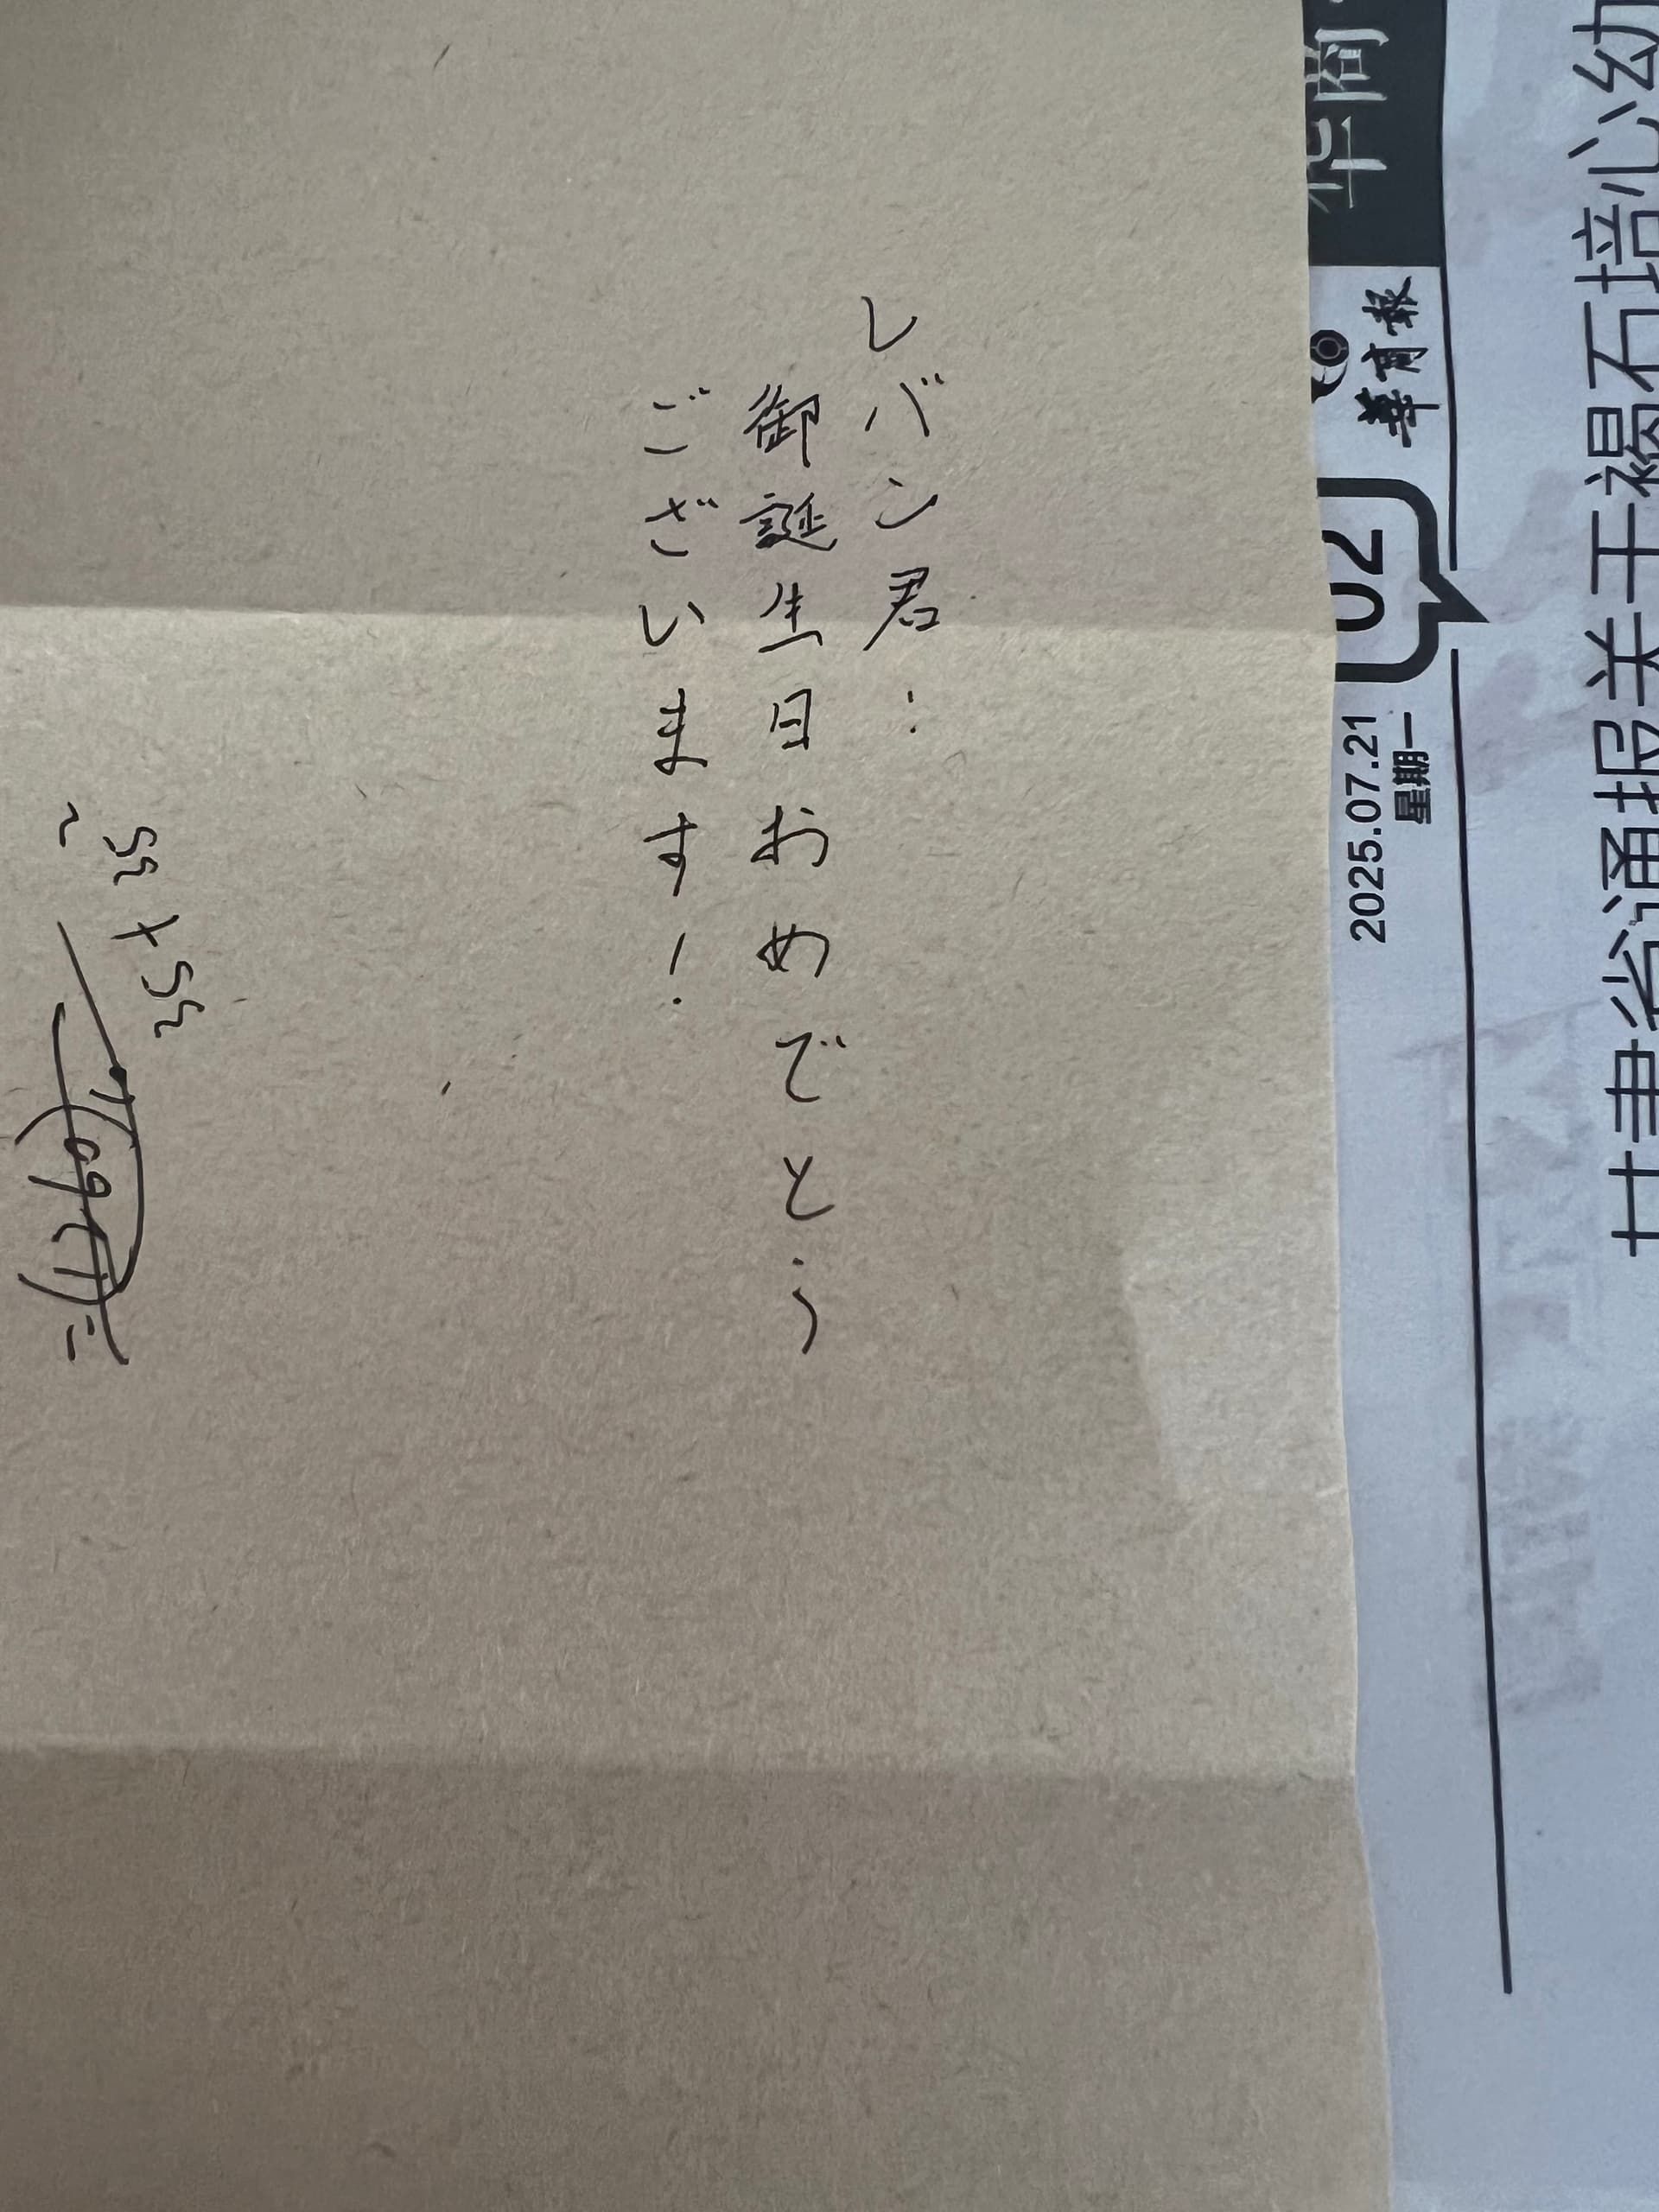 レバン君：
御誕生日おめでとう
ございます！
华商
華商報
02
2025.07.21
星期一
甘肃省通报关于褐石培心幼